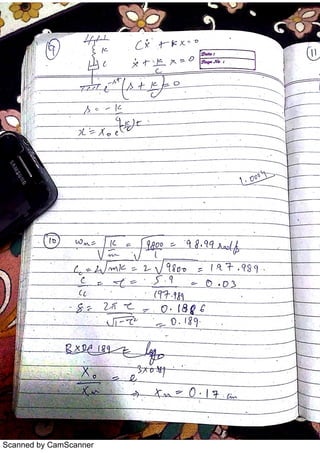 9
K
C
Cẋ + Kx = 0
ẋ + K/C x = 0
Date :
Page No. :
e^-st (s + K/C) = 0
s = -K/C
x = x₀ e^(-K/C)t
11
1.0004
10
ωn = √(K/m) = √(9800/1) = 98.99 rad/s
Cc = 2√mK = 2√9800 = 197.989
C/Cc = τ = 5.9/197.989 = 0.03
δ = 2πτ/√(1-τ²) = 0.1886
= 0.189
X₀/Xn = e^
⇒ Xn = 0.17 cm
SAMSUNG
Scanned by CamScanner